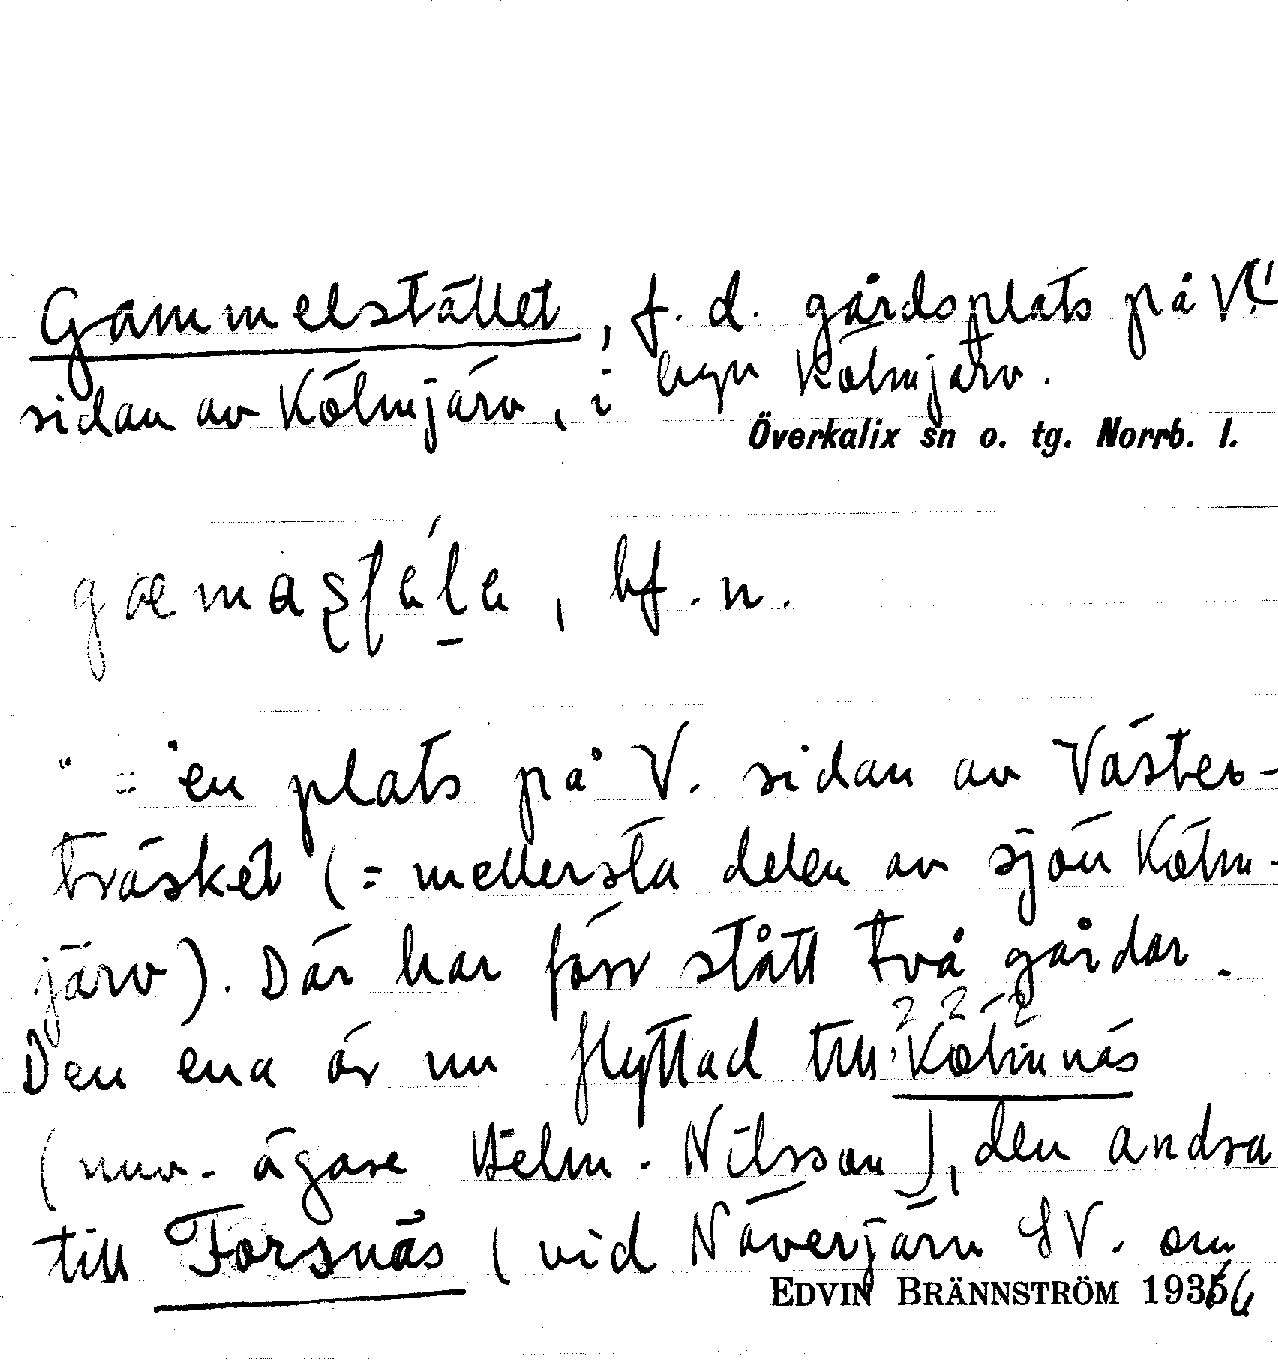 Gammelstället, f. d. gårdsplats på V.
sidan av Kölmjärv, i byn Kölmjärv.
Överkalix sn o. tg. Norrb. l.
bf. n.
" = "en plats på V. sidan av Väster-
träsket (= mellersta delen av sjön Kölm-
järv). Där har förr stått två gårdar.
2 2 2
Den ena är nu flyttad till Kölmnäs
(nuv. ägare Helm. Nilsson), den andra
till Forsnäs (vid Näverjärv SV. om
EDVIN BRÄNNSTRÖM 1936